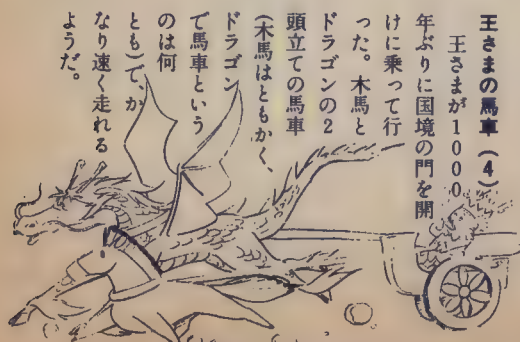 王さまの馬車(4)
王さまが1000
年ぶりに国境の門を開
けに乗って行
った。木馬と
ドラゴンの2
頭立ての馬車
(木馬はともかく、
ドラゴン
で馬車という
のは何
とも)で、か
なり速く走れる
ようだ。